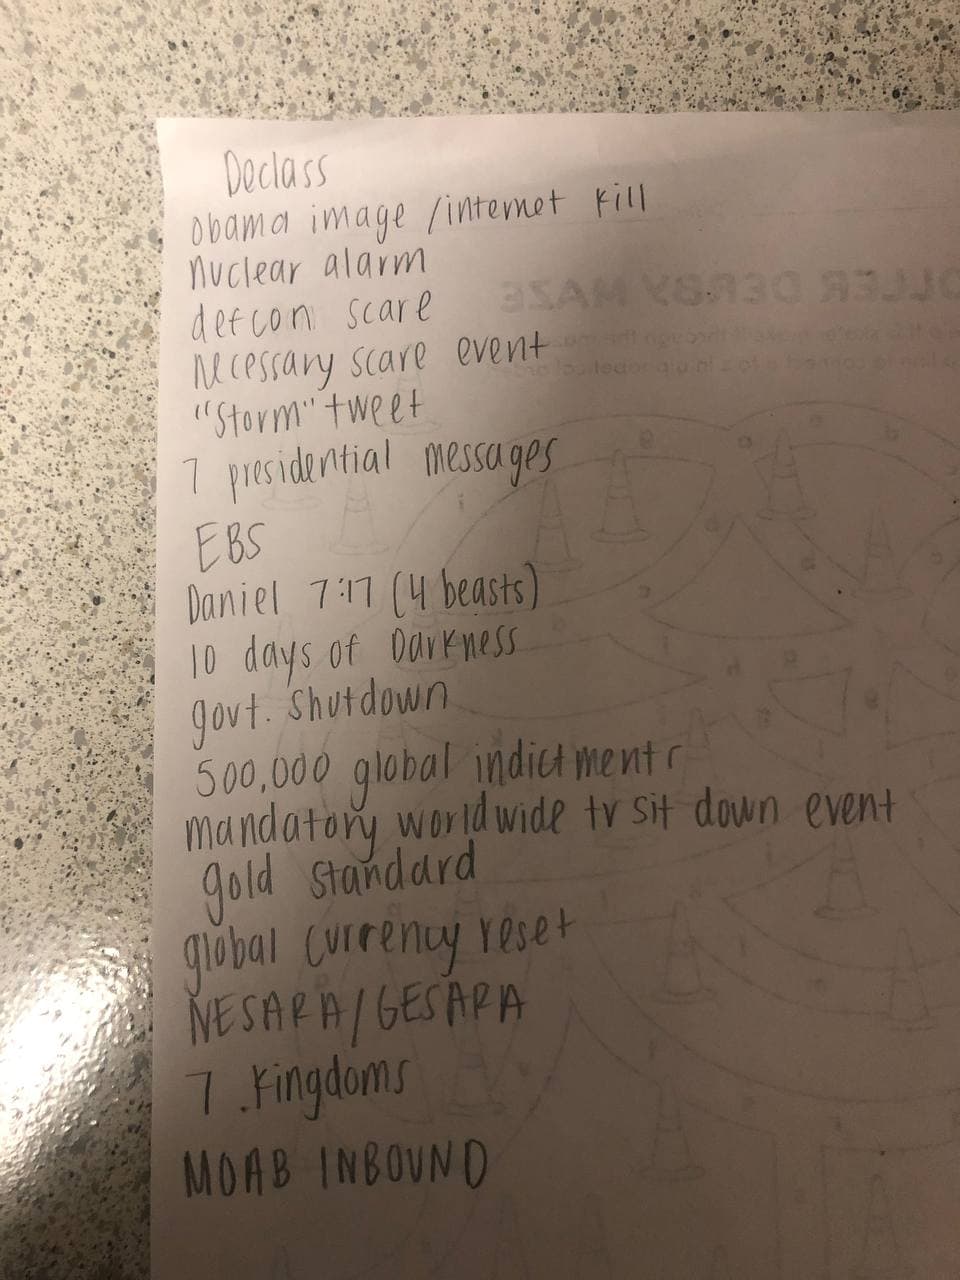 Declass
obama image /internet kill
nuclear alarm
defcon scare
necessary scare event
"Storm" tweet
7 presidential messages
EBS
Daniel 7:17 (4 beasts)
10 days of Darkness
govt. Shutdown
500,000 global indictments
mandatory worldwide tv sit down event
gold standard
global currency reset
NESARA/GESARA
7 .Kingdoms
MOAB INBOUND
OLLER DERBY MAZE